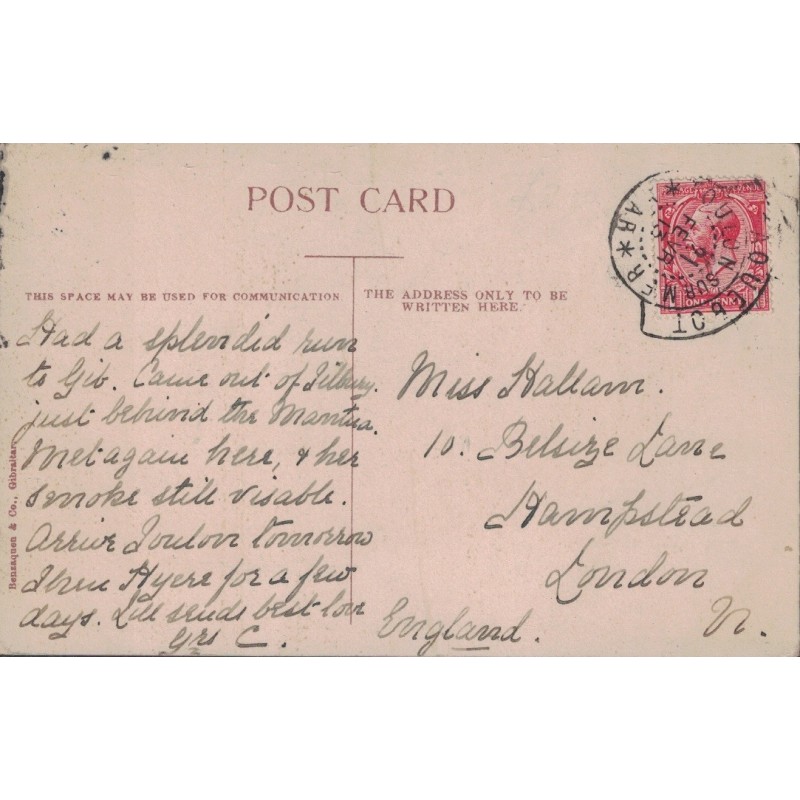 POST CARD
THIS SPACE MAY BE USED FOR COMMUNICATION
THE ADDRESS ONLY TO BE
WRITTEN HERE.
Had a splendid run
to Gib. Came out of Tilbury
just behind the Mantua.
Met again here, & her
smoke still visable.
Arrive Toulon tomorrow
Then Hyere for a few
days. Lill sends best love
Yrs C.
Miss Hallam.
10. Belsize Lane
Hampstead
London
England. N.
Benzaquen & Co., Gibraltar
TOULON SUR MER
VAR
ONE PENNY